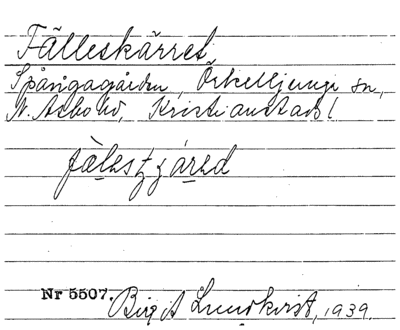 Fälleskärret
Spångagården, Örkelljunga sn,
N. Åsbo hd, Kristianstads l
fàlestʃɑ̀red
Nr 5507. Birgit Lundkvist, 1939.